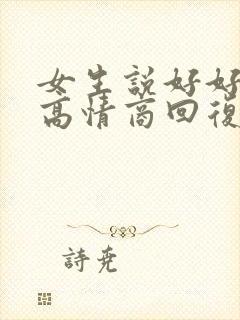 女生説好好
高情商回復
詩堯